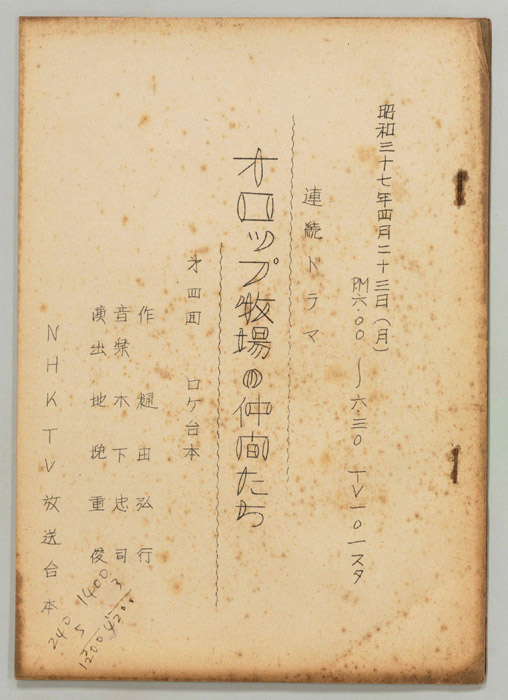 昭和三十七年四月二十三日(月)
PM六.00 〜 六.三0 TV一0一スタ
連続ドラマ
オロップ牧場の仲間たち
才四回 ロケ台本
作 樋田弘行
音楽 木下忠司
演出 地挽重俊
NHKTV放送台本
1400
3
4200
240
5
1200